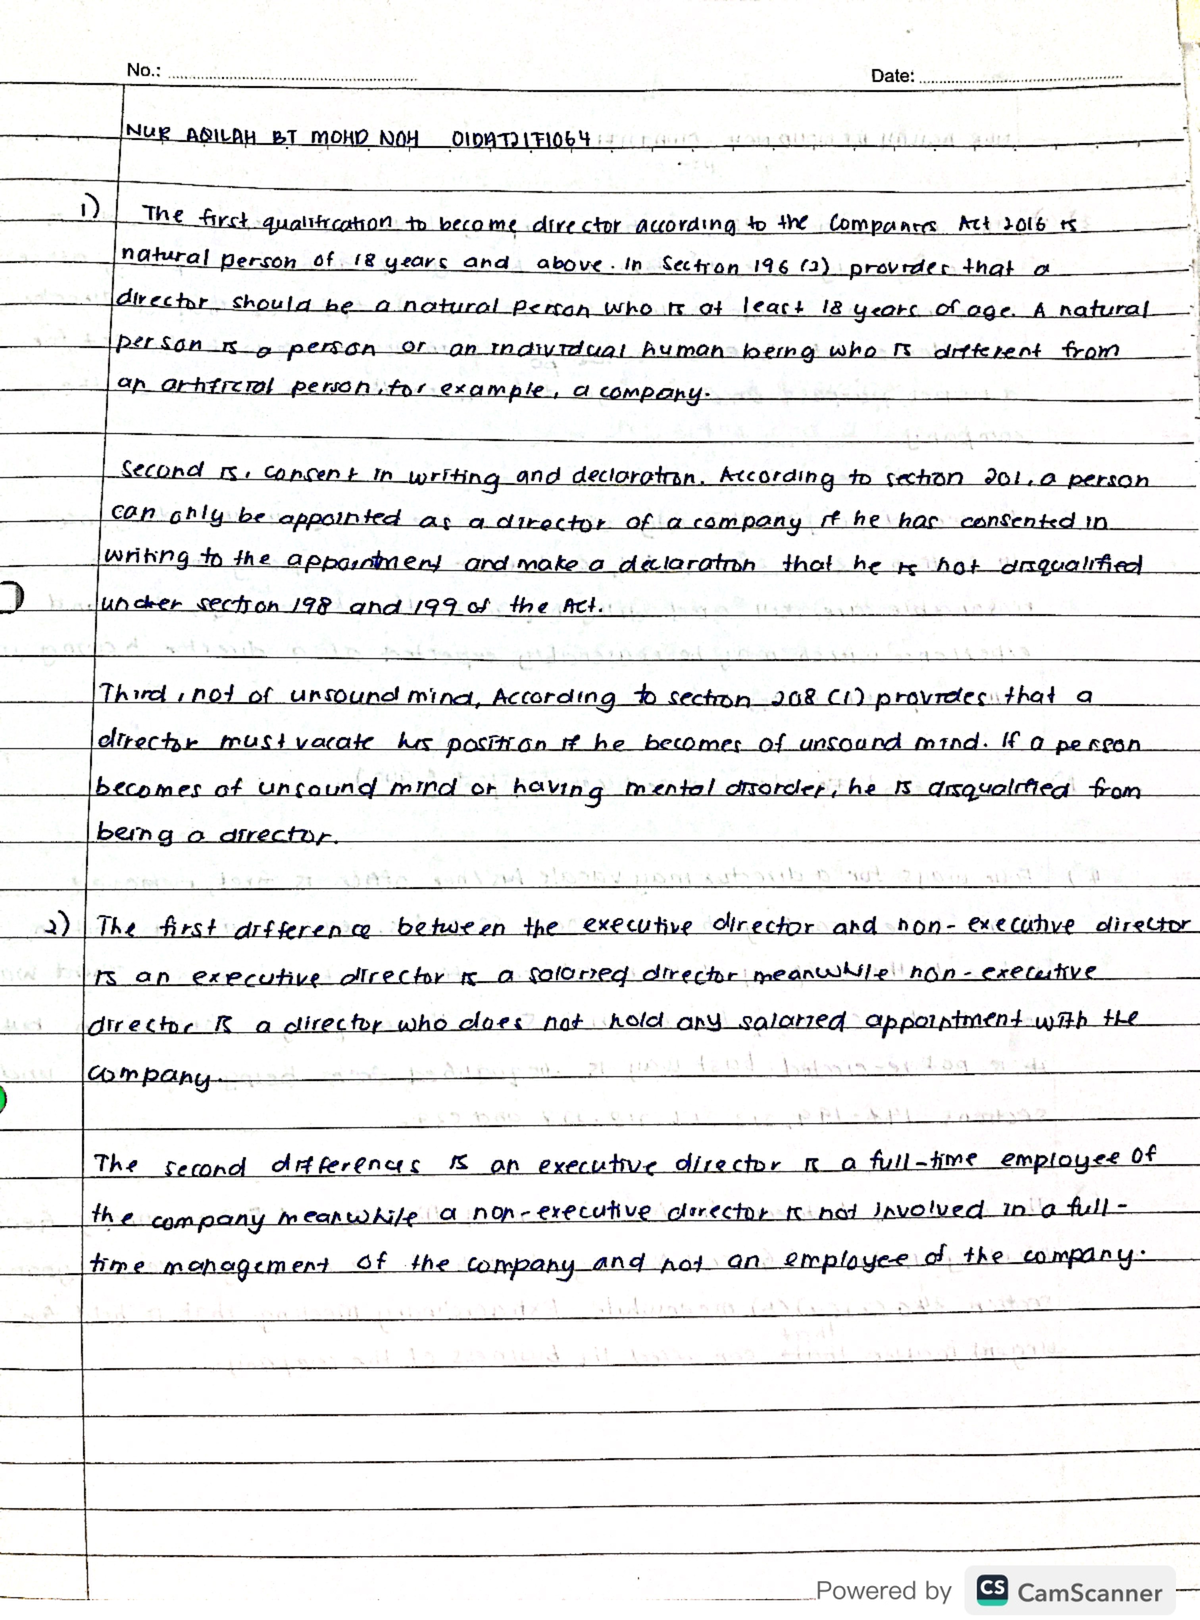 No.:
Date:
NUR AQILAH BT MOHD NOH 01DAT21F1064
1) The first qualification to become director according to the Companies Act 2016 is
natural person of 18 years and above. In Section 196 (2) provides that a
director should be a natural person who is at least 18 years of age. A natural
person is a person or an individual human being who is different from
an artificial person, for example, a company.
Second is, consent in writing and declaration. According to section 201, a person
can only be appointed as a director of a company if he has consented in
writing to the appointment and make a declaration that he is not disqualified
under section 198 and 199 of the Act.
Third, not of unsound mind, According to section 208 (1) provides that a
director must vacate his position if he becomes of unsound mind. If a person
becomes of unsound mind or having mental disorder, he is disqualified from
being a director.
2) The first difference between the executive director and non-executive director
is an executive director is a salaried director meanwhile non-executive
director is a director who does not hold any salaried appointment with the
company.
The second differences is an executive director is a full-time employee of
the company meanwhile a non-executive director is not involved in a full-
time management of the company and not an employee of the company.
Powered by CS CamScanner